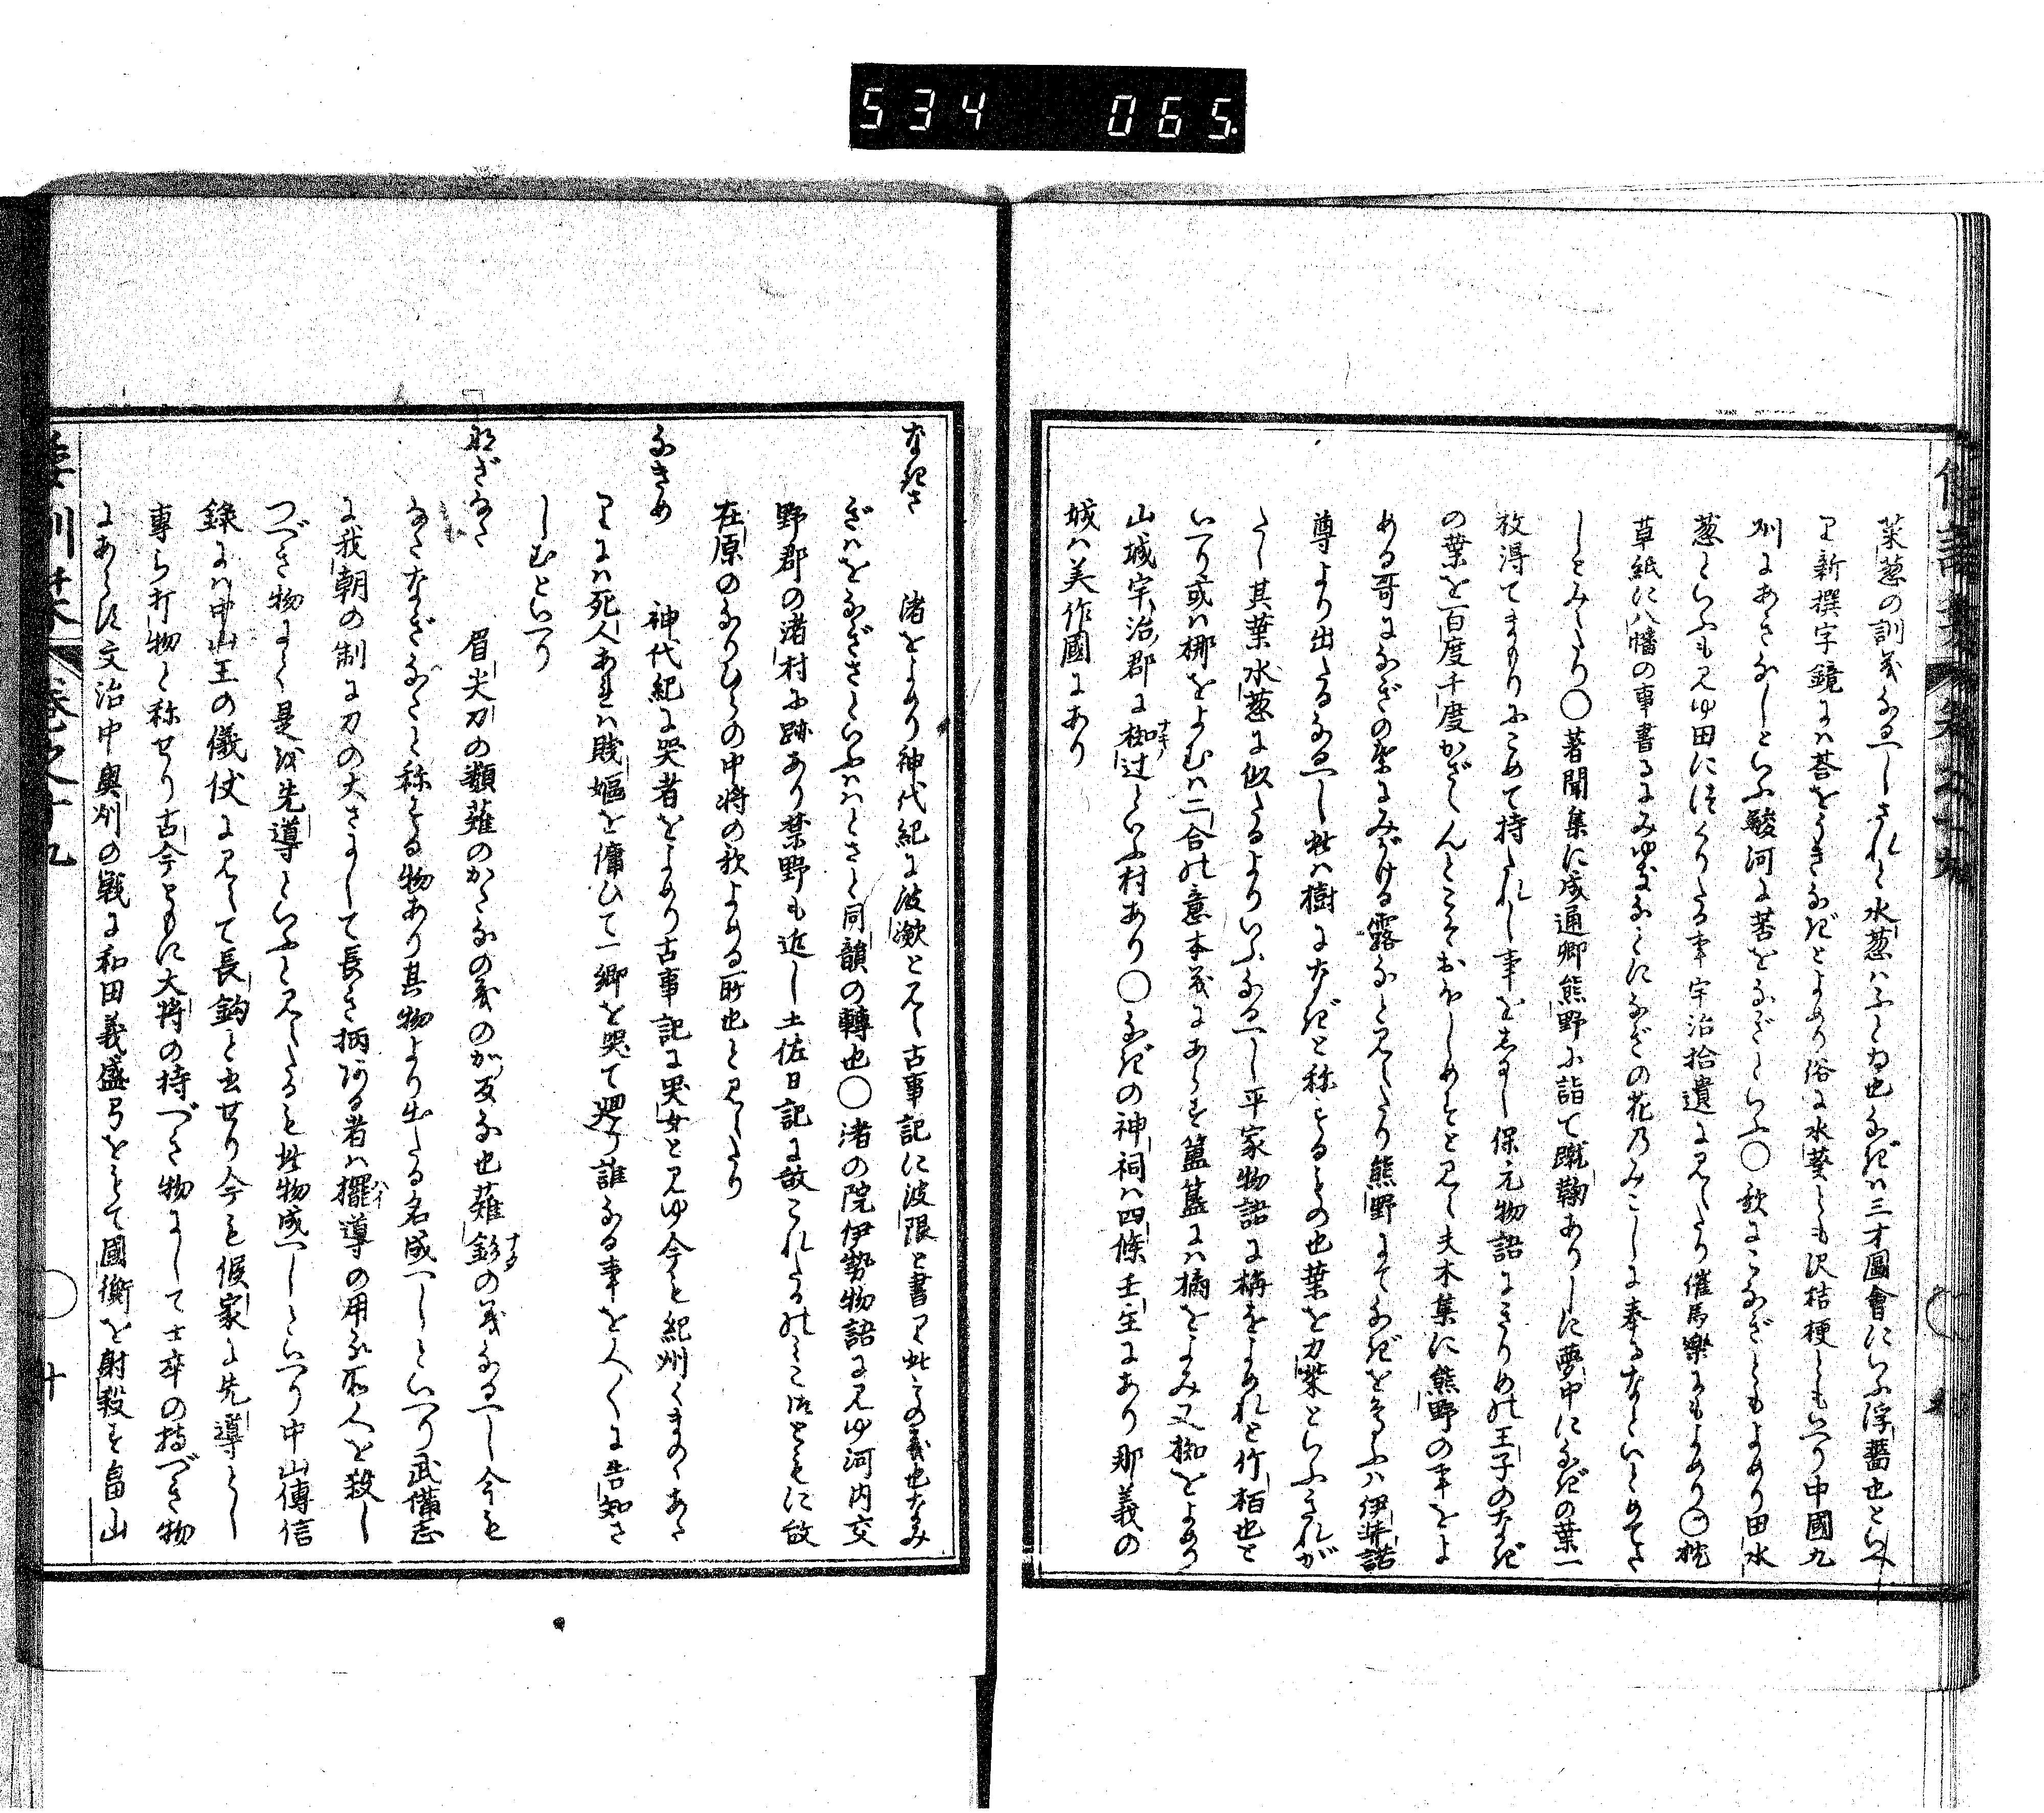 534 065.
菜葱の訓義なるへしされと水葱ハふとゐ也なぎハ三才圖會にいふ浮薔也といへ
り新撰字鏡にハ荅をうきなぎとよめり俗に水葵とも沢桔梗ともいへり中國九
州にあさなしといふ駿河に苦をなぎといふ〇歌にこなぎともよめり田水
葱といふも見ゆ田につくりたる事宇治拾遺に見えたり催馬樂にもよめり〇枕
草紙に八幡の事書るにみゆきなとになぎの花乃みこしに奉るなといとめてた
しとみえたり〇著聞集に成通卿熊野に詣て蹴鞠ありしに夢中になぎの葉一
枚得てまもりにこめて持たれし事をしるし保元物語にきりめの王子のなぎ
の葉を百度千度かざらんとこそおもひしめすと見え夫木集に熊野の事をよ
める哥になぎの葉にみがける露なと見えたり熊野にてなぎをいふハ伊弉諾
尊より出たるなるへし此ハ樹になぎと称するもの也葉を力柴といふされが
たし其葉水葱に似たるよりいふなるへし平家物語に梛をよめれと竹栢也と
いへり或ハ梛をよむハ二合の意本義にあらす簠簋にハ橘をよみ又椥をよめり
山城宇治郡に椥辻といふ村あり〇なぎの神祠ハ四條壬生にあり那義の
城ハ美作國にあり
なぎさ　渚をよめり神代紀に波瀲と見え古事記に波限と書り此の義也なみ
ぎハをなぎさといふハはとさと同韻の轉也〇渚の院伊勢物語に見ゆ河内交
野郡の渚村に跡あり禁野も近し土佐日記に故これたかのみこ御ともに故
在原のなりひらの中将の歌よめる所也と見えたり
なきめ　神代紀に哭者をよめり古事記に哭女と見ゆ今も紀州くまのゝあた
りにハ死人あれハ賎嫗を傭ひて一郷を哭て廻り誰なる事を人々に告知さ
しむといへり
なぎなた　眉尖刀の類薙のかたなの義のが反な也薙釤の義なるへし今も
なたなぎなたと称する物あり其物より出たる名成へしといへり武備志
に我朝の制に刀の大さにして長き柄ある者ハ擺導の用なり不人を殺し
つべき物にて是を先導といふと見えたるも此物成へしといへり中山傳信
錄にハ中山王の儀仗に見えて長鈎と出せり今も候家に先導とし
專ら打物と称せり古今ともに大将の持べき物にして士卒の持べき物
にあらす文治中奥州の戰に和田義盛弓をもて國衡を射殺す畠山
倭訓栞 卷之十九 十